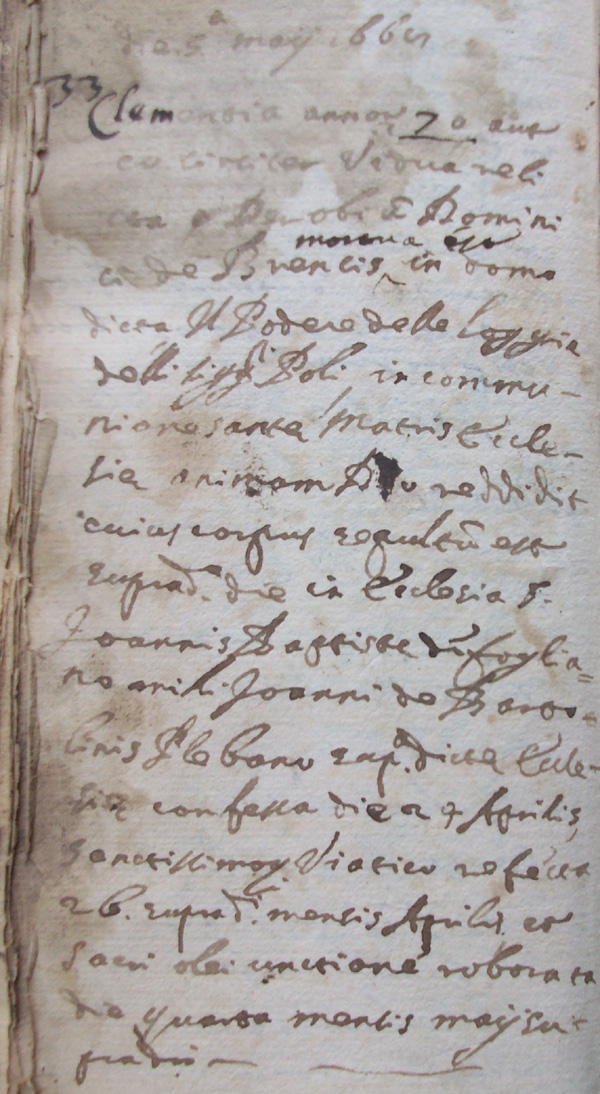 die 5ª maij 166
33
Clementia annor 70 aut
circiter Vidua reli
cta q Domini
ci de Brencis mortua est in domo
dicta Il Podere delle loggia
delli sigri Poli, in commu-
nione santæ Matris Eccle-
siæ animam Deo reddidit
cuius corpus sepultũ est
suprad.ª die in Ecclesia S.
Joannis Baptiste de foglia=
no mihi Joanni de Barto=
linis Plebano sup.ª dictæ Eccle-
siæ confessa die 24 Aprilis,
Sanctissimoq Viatico refecta
26. suprad.i mensis Aprilis et
sacri olei unctione roborata
die quarta mensis maij su-
pradi